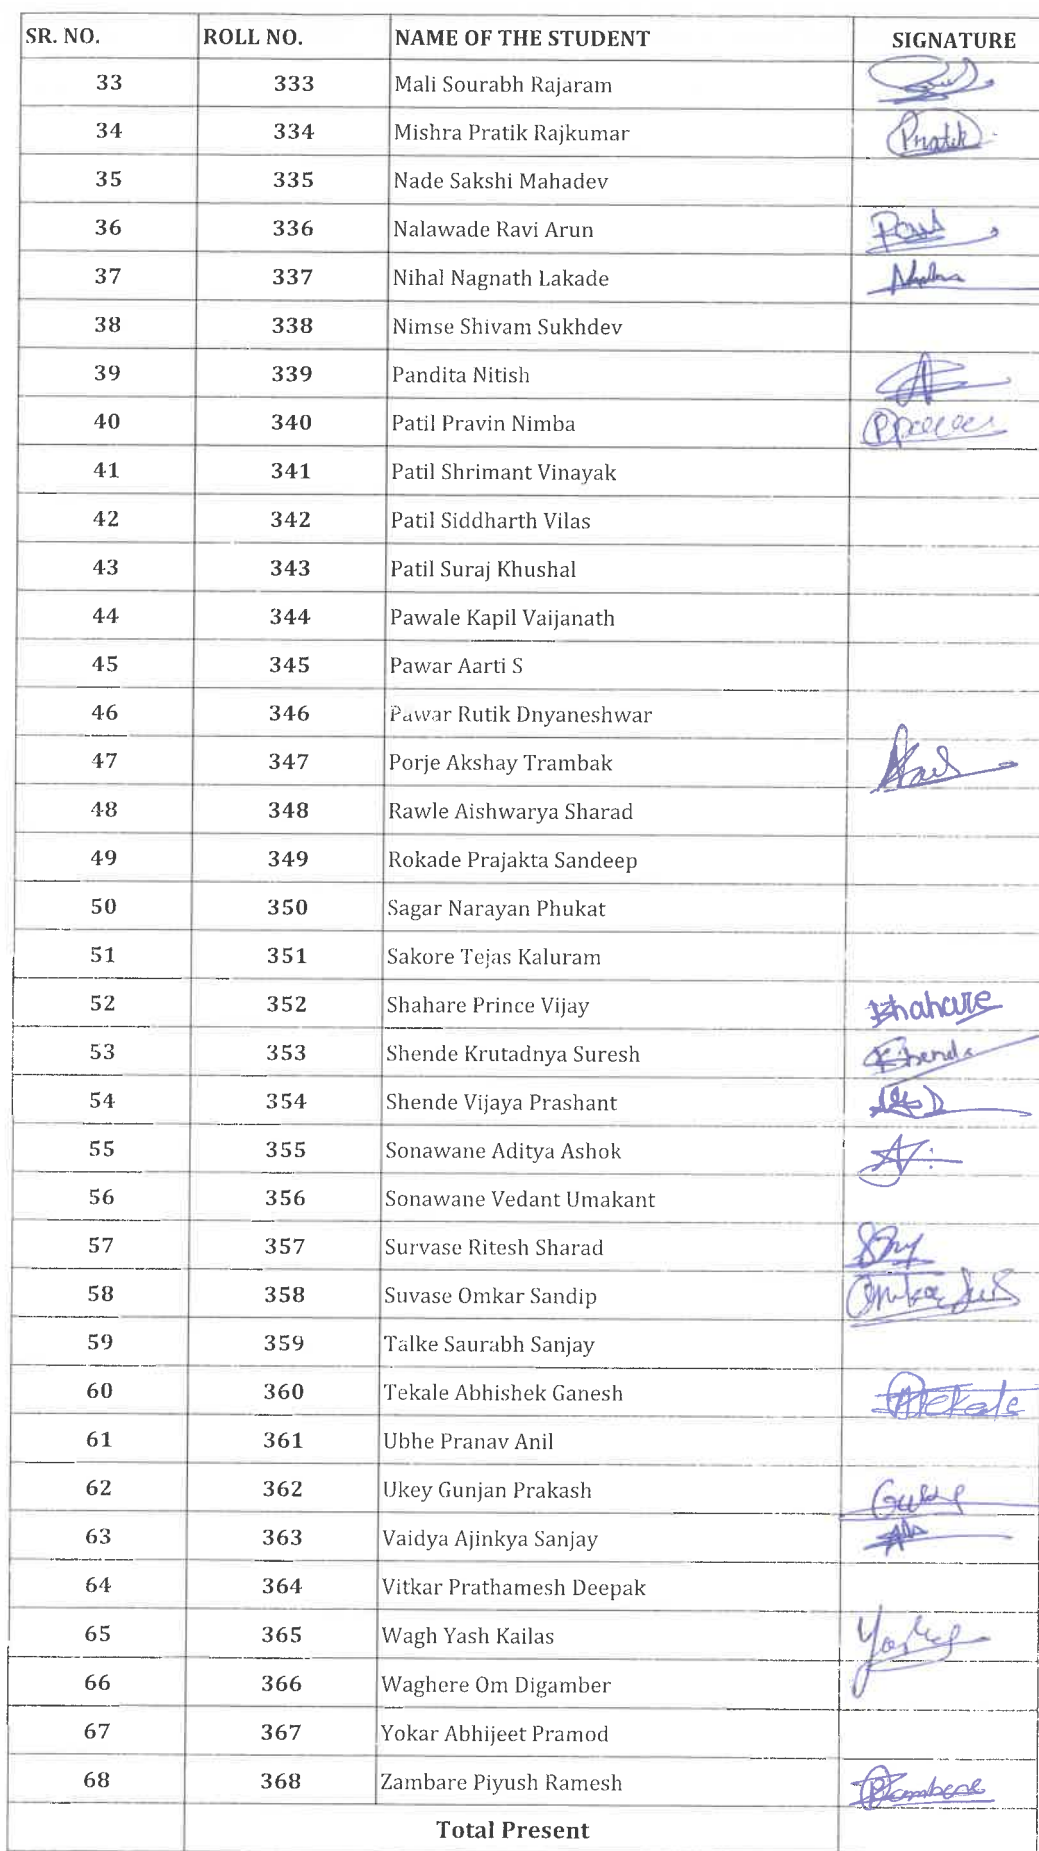 SR. NO. ROLL NO. NAME OF THE STUDENT SIGNATURE
33 333 Mali Sourabh Rajaram
34 334 Mishra Pratik Rajkumar Pratik
35 335 Nade Sakshi Mahadev
36 336 Nalawade Ravi Arun
37 337 Nihal Nagnath Lakade
38 338 Nimse Shivam Sukhdev
39 339 Pandita Nitish
40 340 Patil Pravin Nimba
41 341 Patil Shrimant Vinayak
42 342 Patil Siddharth Vilas
43 343 Patil Suraj Khushal
44 344 Pawale Kapil Vaijanath
45 345 Pawar Aarti S
46 346 Pawar Rutik Dnyaneshwar
47 347 Porje Akshay Trambak
48 348 Rawle Aishwarya Sharad
49 349 Rokade Prajakta Sandeep
50 350 Sagar Narayan Phukat
51 351 Sakore Tejas Kaluram
52 352 Shahare Prince Vijay Shahare
53 353 Shende Krutadnya Suresh
54 354 Shende Vijaya Prashant
55 355 Sonawane Aditya Ashok
56 356 Sonawane Vedant Umakant
57 357 Survase Ritesh Sharad
58 358 Suvase Omkar Sandip Omkar
59 359 Talke Saurabh Sanjay
60 360 Tekale Abhishek Ganesh ATekale
61 361 Ubhe Pranav Anil
62 362 Ukey Gunjan Prakash
63 363 Vaidya Ajinkya Sanjay
64 364 Vitkar Prathamesh Deepak
65 365 Wagh Yash Kailas
66 366 Waghere Om Digamber
67 367 Yokar Abhijeet Pramod
68 368 Zambare Piyush Ramesh
Total Present